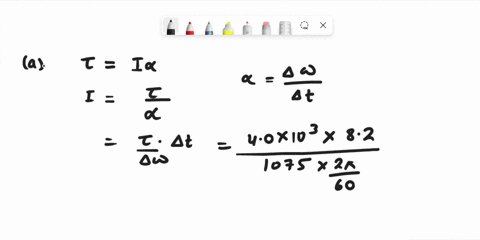 (a) τ = Iα
α = Δω/Δt
I = τ/α
= τ/Δω · Δt = 4.0×10³ × 8.2 / 1075 × 2π/60